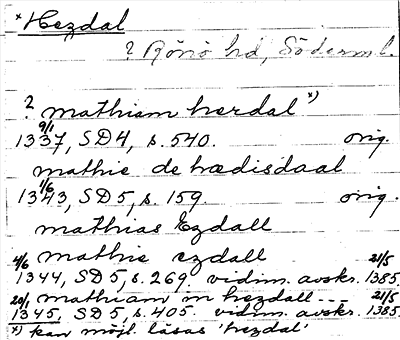 *Hezdal
? Rönö hd, Söderml.
? mathiam herdal *)
1337, 9/1 SD4, s. 540. orig.
mathie de hædisdaal
1343, 1/6 SD5, s. 159. orig.
mathias Ezdall
mathie ezdall
1344, 4/6 SD5, s. 269. vidim. avskr. 21/5 1385
mathiam in hezdall - - -
1345, 20/1 SD5, s. 405. vidim. avskr. 21/5 1385
*) kan möjl. läsas 'hezdal'